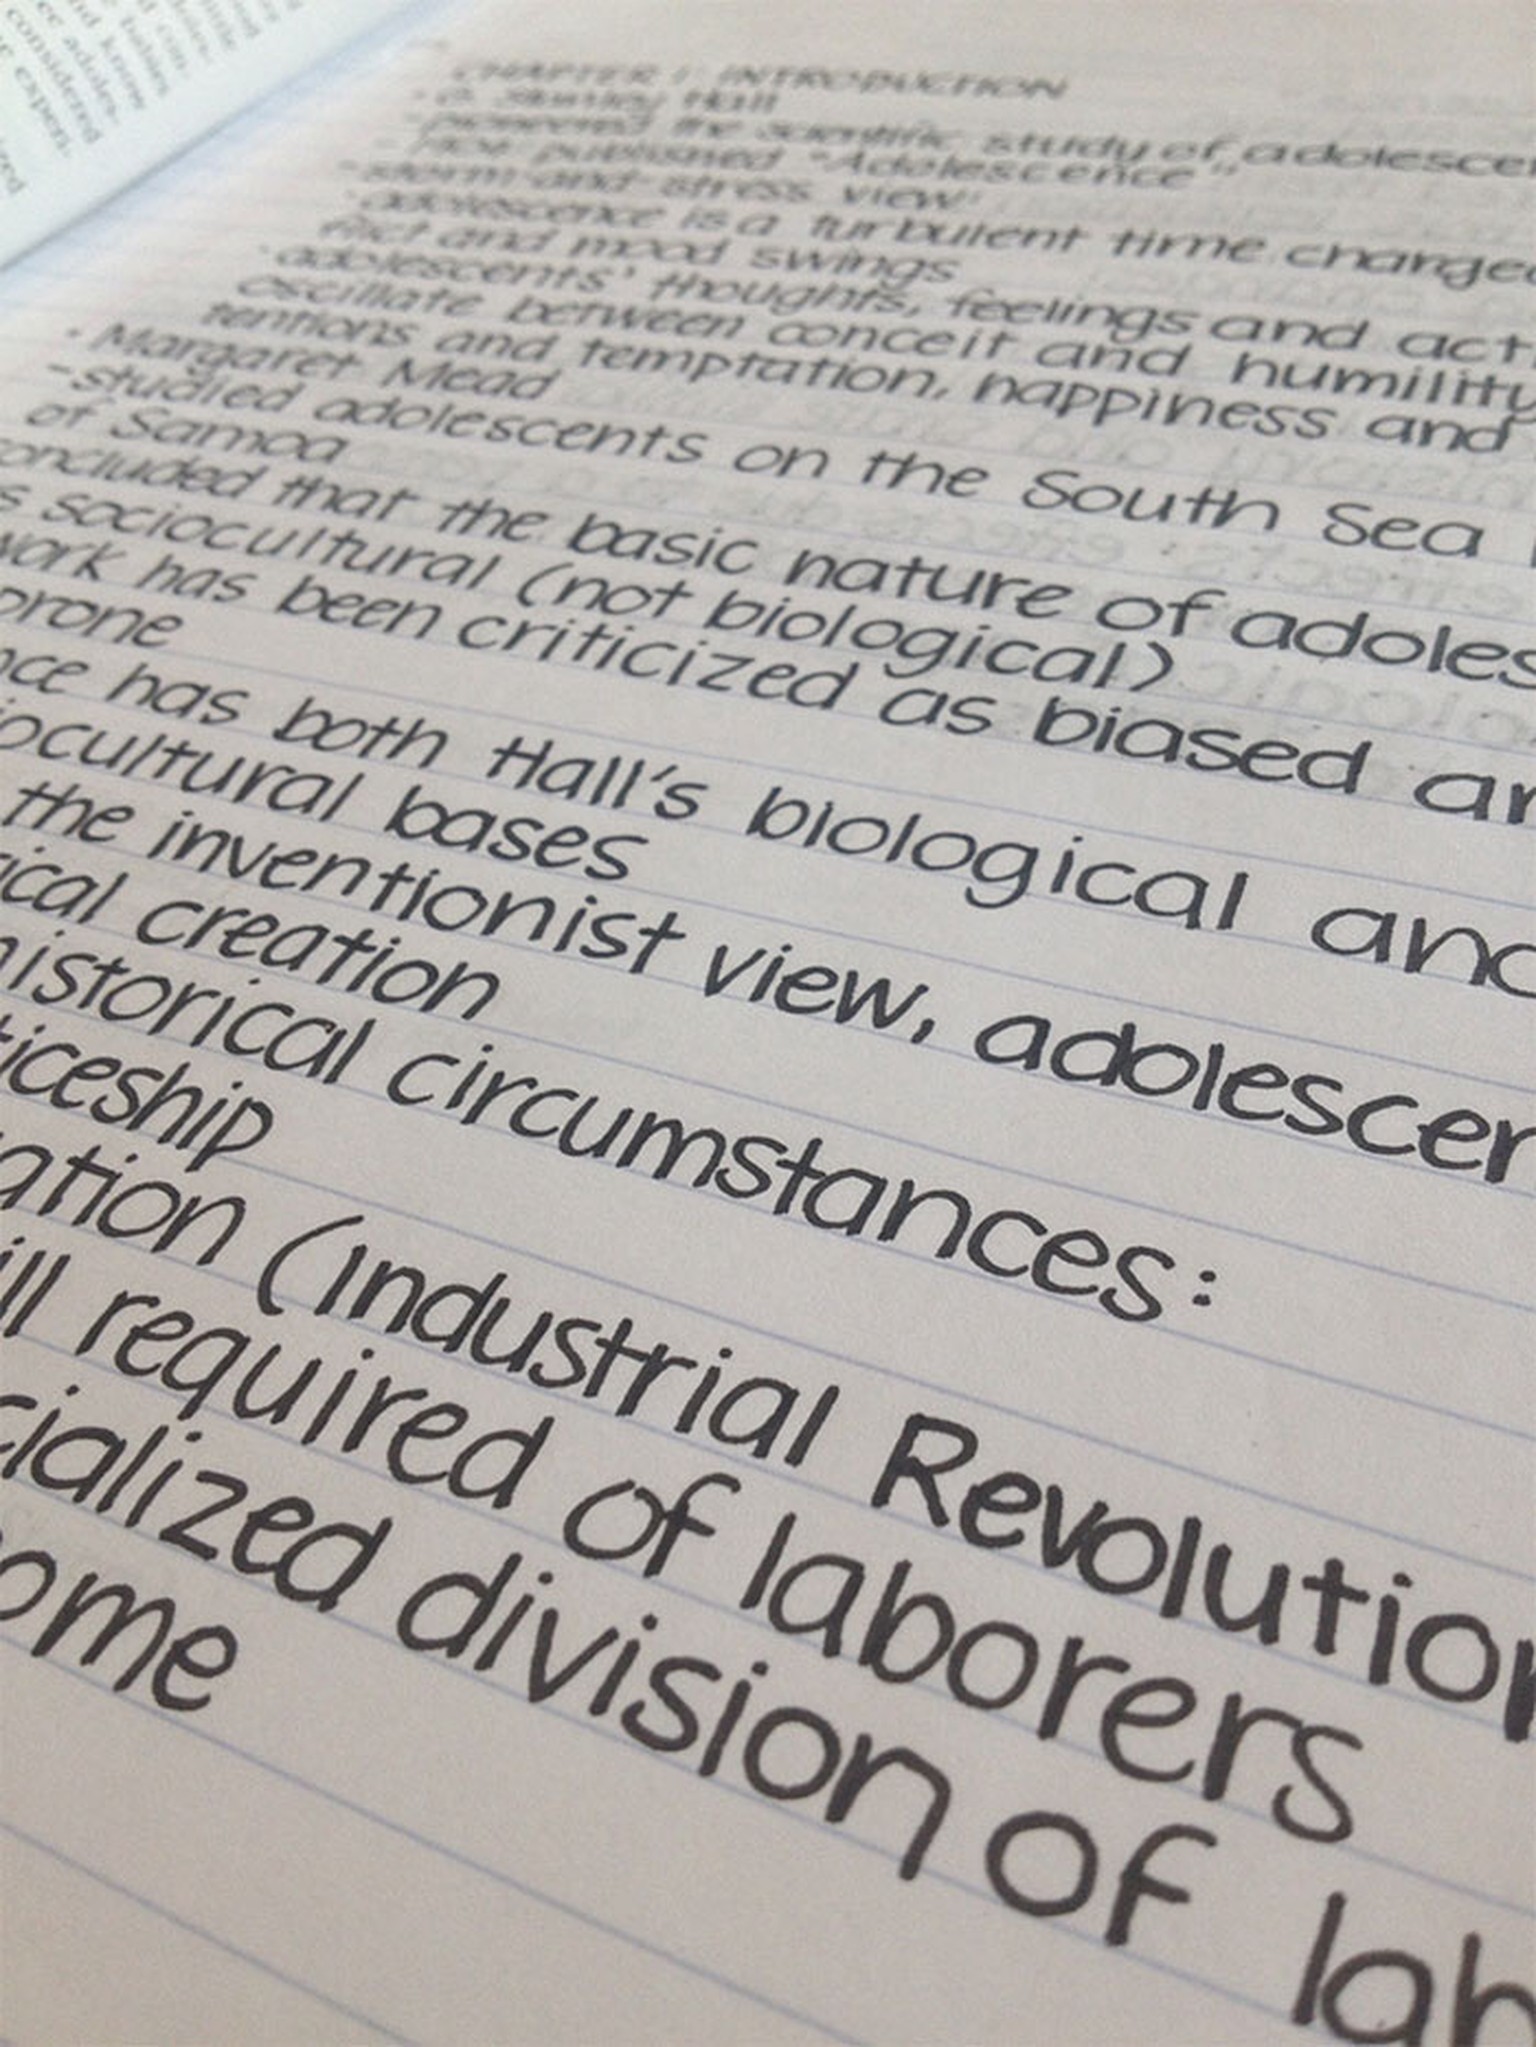 CHAPTER 1: INTRODUCTION
· G. Stanley Hall
-pioneered the scientific study of adolesce
- 1904: published "Adolescence"
-storm-and-stress view:
·adolescence is a turbulent time charged
flict and mood swings
·adolescents' thoughts, feelings and act
oscillate between conceit and humility
tentions and temptation, happiness and
· Margaret Mead
-studied adolescents on the South Sea
of Samoa
oncluded that the basic nature of adoles
s sociocultural (not biological)
work has been criticized as biased an
prone
nce has both Hall's biological and
iocultural bases
the inventionist view, adolescen
ical creation
historical circumstances:
ticeship
ation (Industrial Revolution
ill required of laborers
cialized division of lab
ome